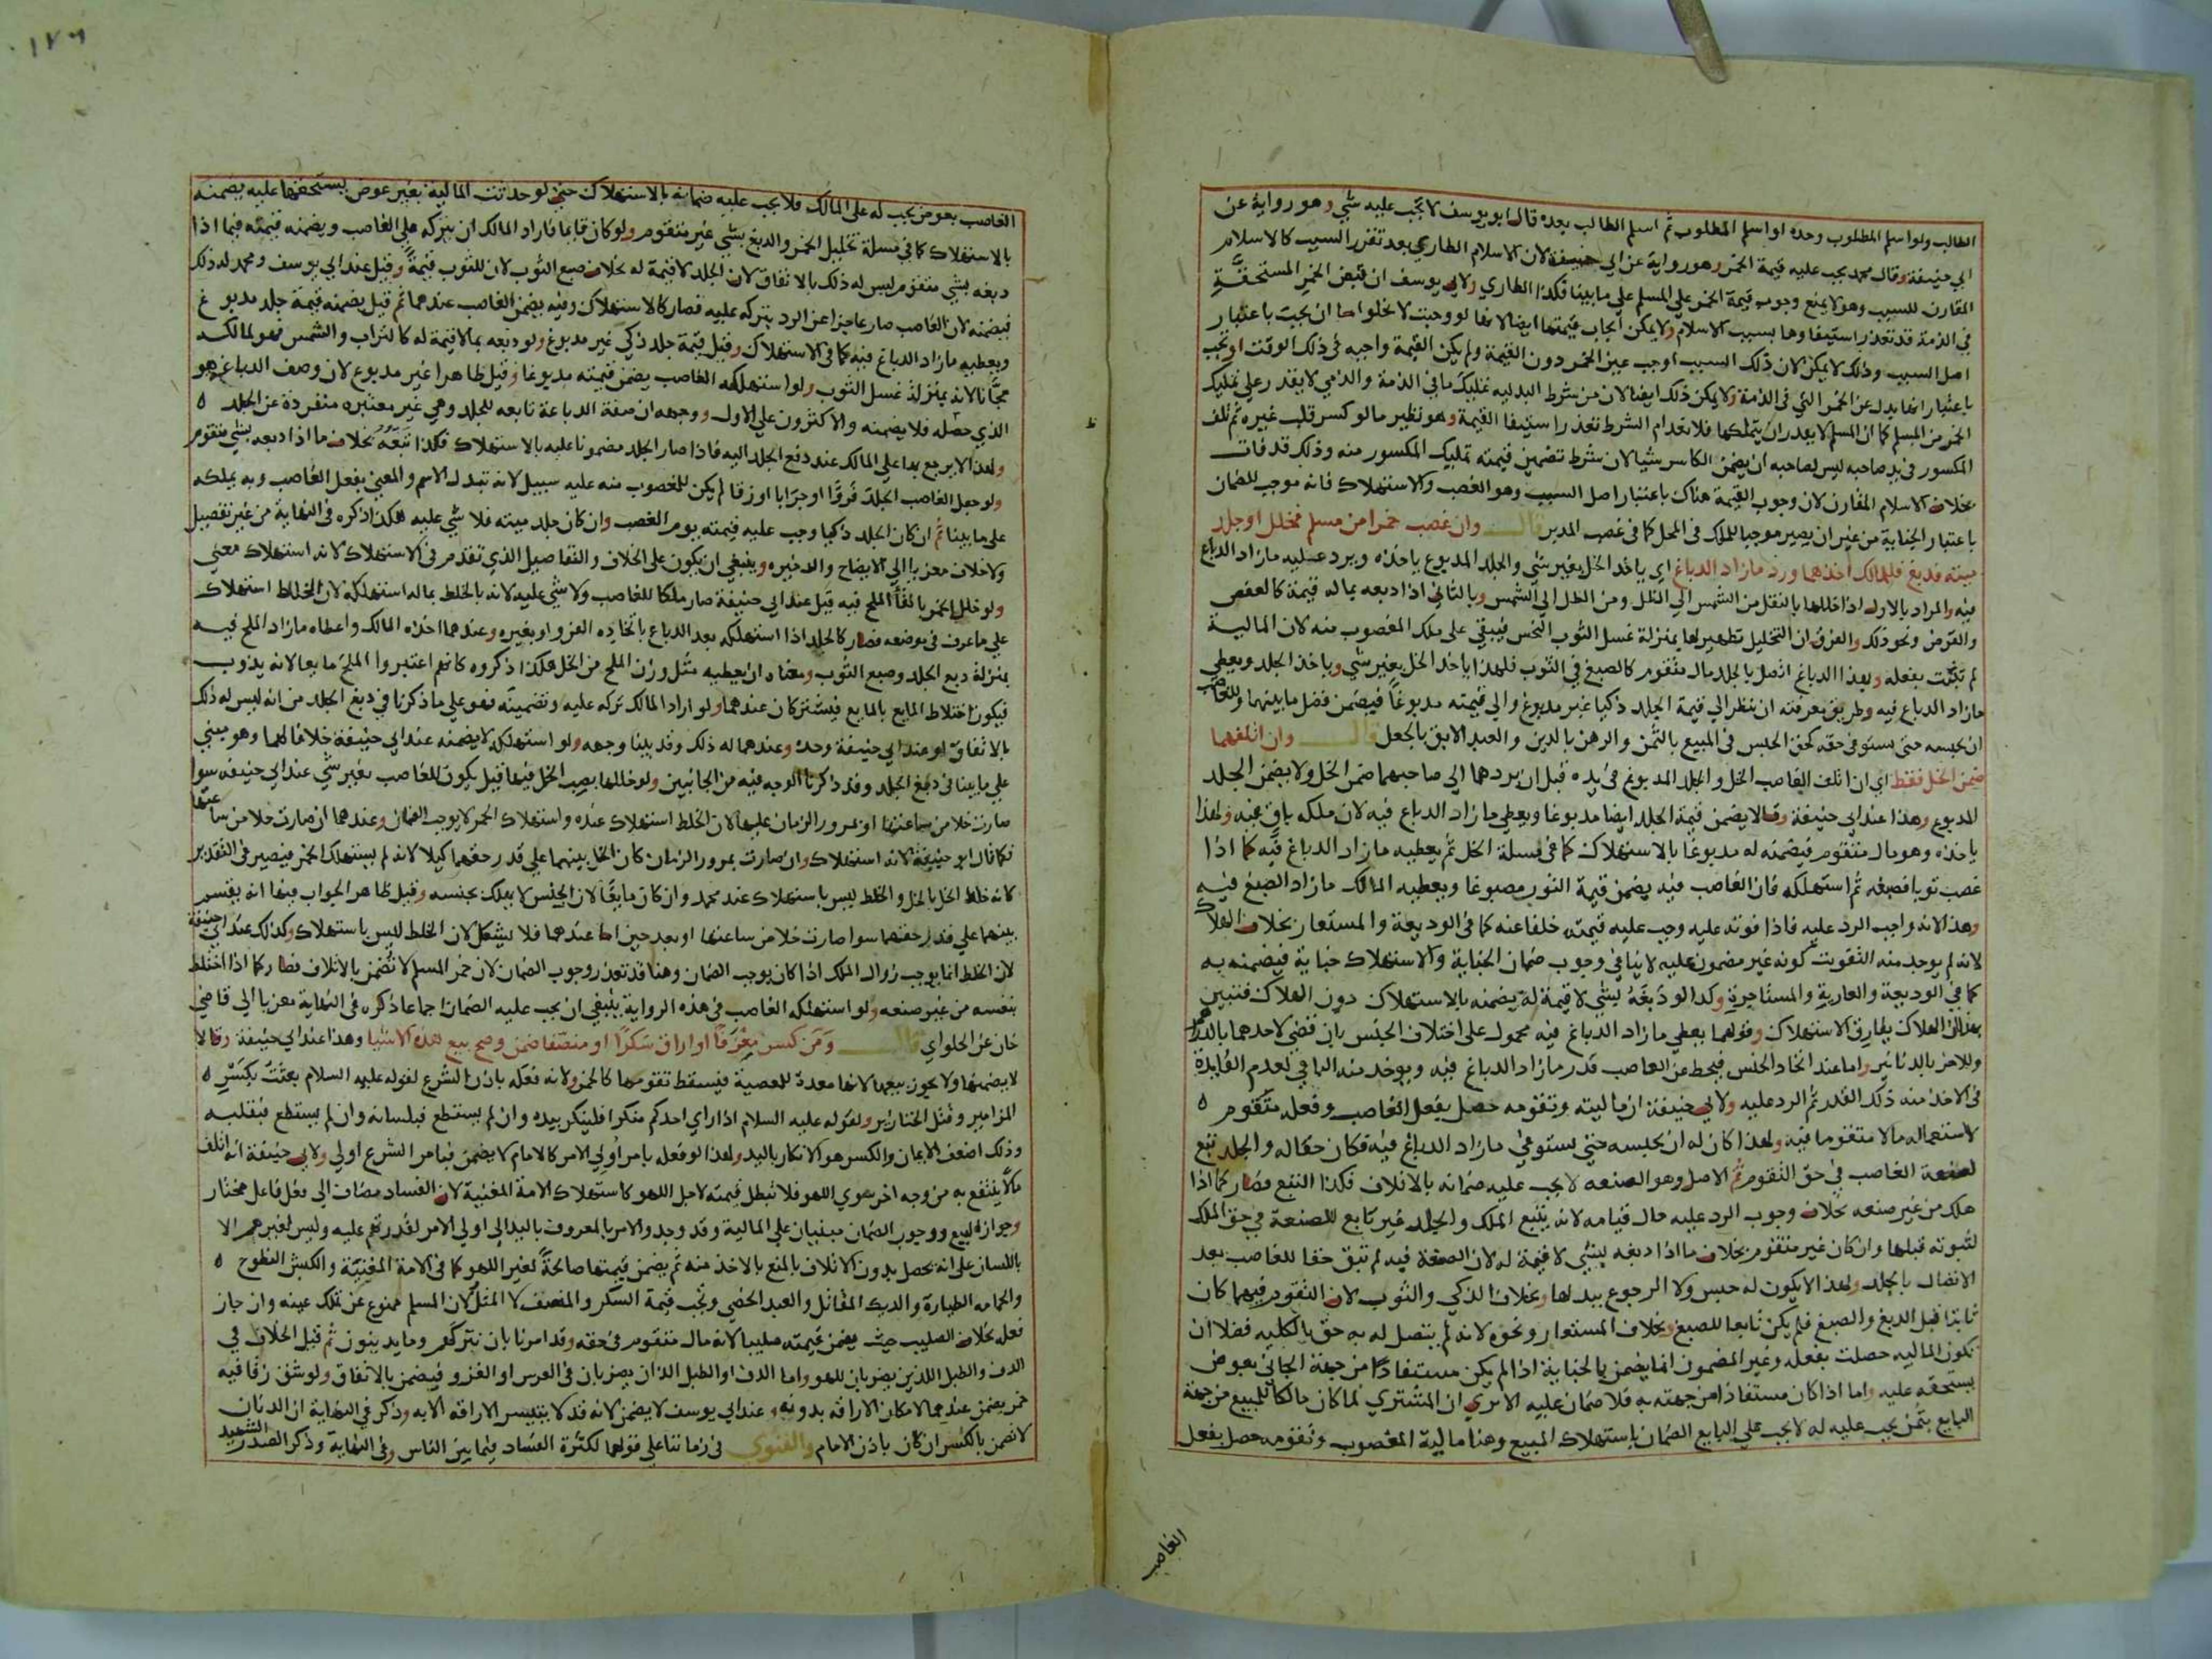 الطالب ولو اسلم المطلوب وحده او اسلم المطلوب ثم اسلم الطالب بعده قال ابو يوسف لا يجب عليه شي وهو رواية عن
ابي حنيفة وقال محمد يجب عليه قيمة الخمر وهو رواية عن ابي حنيفة لان الاسلام الطاري بعد تقرر السبب كالاسلام
المقارن للسبب وهو لا يمنع وجوب قيمة الخمر على المسلم على ما بينا فكذا الطاري ولابي يوسف ان قبض الخمر المستحقة
في الذمة قد تعذر استيفاوها بسبب الاسلام ولا يمكن ايجاب قيمتها ايضا لانها لو وجبت لا يخلوا اما ان يجب باعتبار
اصل السبب وذلك لا يمكن لان ذلك السبب اوجب عين الخمر دون القيمة ولم يكن القيمة واجبه في ذلك الوقت او تجب
باعتبار انها بدل عن الخمر التي في الذمة ولا يمكن ذلك ايضا لان من شرط البدليه تمليك ما في الذمة والذمي لا يقدر على تمليك
الخمر من المسلم كما ان المسلم لا يقدر ان يتملكها فلانعدام الشرط تعذر استيفا القيمة وهو نظير ما لو كسر قلب غيره ثم تلف
المكسور في يد صاحبه ليس لصاحبه ان يضمن الكاسر شيا لان شرط تضمين قيمته تمليك المكسور منه وذلك قد فات
بخلاف الاسلام المقارن لان وجوب القيمة هناك باعتبار اصل السبب وهو الغصب والاستهلاك فانه موجب للضمان
باعتبار الجناية من غير ان يصير موجبا للملك في المحل كما في غصب المدبر قال وان غصب خمرا من مسلم فخلل او جلد
ميتة فدبغ فللمالك اخذهما ورد ما زاد الدباغ اي ياخذ الخل بغير شي والجلد المدبوغ ياخذه ويرد عليه ما زاد الدباغ
فيه والمراد بالاول اذا خللها بالنقل من الشمس الي الظل ومن الظل الي الشمس وبالثاني اذا دبغه بما له قيمة كالعفص
والقرض ونحو ذلك والفرق ان التخليل تطهير لها بمنزلة غسل الثوب النجس فيبقي على ملك المغصوب منه لان المالية
لم تثبت بفعله وبهذا الدباغ اتصل بالجلد مال متقوم كالصبغ في الثوب فلهذا ياخذ الخل بغير شي وياخذ الجلد ويعطي
ما زاد الدباغ فيه وطريق معرفته ان ينظر الي قيمة الجلد ذكيا غير مدبوغ والي قيمته مدبوغا فيضمن فضل ما بينهما وللغاصب
ان يحبسه حتي يستوفي حقه كحق الحبس في المبيع بالثمن والرهن بالدين والعبد الابق بالجعل قال وان اتلفهما
ضمن الخل فقط اي ان اتلف الغاصب الخل والجلد المدبوغ في يده قبل ان يردهما الي صاحبهما ضمن الخل ولا يضمن الجلد
المدبوغ وهذا عند ابي حنيفة وقالا يضمن قيمة الجلد ايضا مدبوغا ويعطي ما زاد الدباغ فيه لان ملكه باق فيه ولهذا
ياخذه وهو مال متقوم فيضمنه له مدبوغا بالاستهلاك كما في مسلة الخل ثم يعطيه ما زاد الدباغ فيه كما اذا
غصب ثوبا فصبغه ثم استهلكه فان الغاصب فيه يضمن قيمة الثوب مصبوغا ويعطيه المالك ما زاد الصبغ فيه
وهذا لانه واجب الرد عليه فاذا فوته عليه وجب عليه قيمته خلفا عنه كما في الوديعة والمستعار بخلاف الهلاك
لانه لم يوجد منه التفويت كونه غير مضمون عليه لا ينافي وجوب ضمان الجناية والاستهلاك جناية فيضمنه به
كما في الوديعة والعارية والمستاجرة وكذا لو دبغه بشي لا قيمة له يضمنه بالاستهلاك دون الهلاك فتبين
بهذا ان الهلاك يفارق الاستهلاك وقولهما يعطي ما زاد الدباغ فيه محمول على اختلاف الجنس بان قضي لاحدهما بالدراهم
وللاخر بالدنانير واما عند اتحاد الجنس فيحط عن الغاصب قدر ما زاد الدباغ فيه ويوخذ منه الباقي لعدم الفايدة
في الاخذ منه ذلك القدر ثم الرد عليه ولابي حنيفة ان ماليته وتقومه حصل بفعل الغاصب وفعله متقوم
لاستعماله مالا متقوما فيه ولهذا كان له ان يحبسه حتي يستوفي ما زاد الدباغ فيه فكان حقا له والجلد تبع
لصنعة الغاصب في حق التقوم ثم الاصل وهو الصنعه لا يجب عليه ضمانه بالاتلاف فكذا التبع فصار كما اذا
هلك من غير صنعه بخلاف وجوب الرد عليه حال قيامه لانه يتبع الملك والجلد غير تابع للصنعة في حق الملك
لثبوته قبلها وان كان غير متقوم بخلاف ما اذا دبغه بشي لا قيمة له لان الصنعة فيه لم تبق حقا للغاصب بعد
الاتصال بالجلد ولهذا لا يكون له حبس ولا الرجوع ببدلها وبخلاف الذكي والثوب لان التقوم فيهما كان
ثابتا قبل الدبغ والصبغ فلم يكن تابعا للصبغ وبخلاف المستعار ونحوه لانه لم يتصل له به حق بالكليه فضلا ان
تكون الماليه حصلت بفعله وغير المضمون انما يضمن بالجناية اذا لم يكن مستفادا من جهة الجاني بعوض
يستحقه عليه واما اذا كان مستفادا من جهته به فلا ضمان عليه الا تري ان المشتري لما كان مالكا للمبيع من جهة
البايع بثمن يجب عليه له لا يجب على البايع الضمان باستهلاك المبيع وهنا مالية المغصوب وتقومه حصل بفعل
الغاصب
١٧٦
الغاصب بعوض يجب له على المالك فلا يجب عليه ضمانه بالاستهلاك حتي لو حدثت المالية بغير عوض يستحقها عليه يضمنه
بالاستهلاك كما في مسلة تخليل الخمر والدبغ بشي غير متقوم ولو كان قايما فاراد المالك ان يتركه على الغاصب ويضمنه قيمته فيما اذا
دبغه بشي متقوم ليس له ذلك بالاتفاق لان الجلد لا قيمة له بخلاف صبغ الثوب لان للثوب قيمة وقيل عند ابي يوسف ومحمد له ذلك
فيضمنه لان الغاصب صار عاجزا عن الرد بتركه عليه فصار كالاستهلاك وفيه يضمن الغاصب عندهما ثم قيل يضمنه قيمة جلد مدبوغ
ويعطيه ما زاد الدباغ فيه كما في الاستهلاك وقيل قيمة جلد ذكي غير مدبوغ ولو دبغه بما لا قيمة له كالتراب والشمس فهو لمالكه
مجانا لانه بمنزلة غسل الثوب ولو استهلكه الغاصب يضمن قيمته مدبوغا وقيل طاهرا غير مدبوغ لان وصف الدباغ هو
الذي حصله فلا يضمنه والاكثرون على الاول ووجهه ان صفة الدباغة تابعه للجلد وهي غير معتبره منفردة عن الجلد
ولهذا لا يرجع بها على المالك عند دفع الجلد اليه فاذا صار الجلد مضمونا عليه بالاستهلاك فكذا تبعه بخلاف ما اذا دبغه بشي متقوم
ولو جعل الغاصب الجلد فروا او جرابا او زقا لم يكن للمغصوب منه عليه سبيل لانه تبدل الاسم والمعني بفعل الغاصب وبه يملكه
على ما بينا ثم ان كان الجلد ذكيا وجب عليه قيمته يوم الغصب وان كان جلد ميته فلا شي عليه هكذا ذكره في النهاية من غير تفصيل
ولا خلاف معزيا الي الايضاح والذخيره وينبغي ان يكون على الخلاف والتفاصيل الذي تقدم في الاستهلاك لانه استهلاك معني
ولو خلل الخمر بالقا الملح فيه قيل عند ابي حنيفة صار ملكا للغاصب ولا شي عليه لانه بالخلط بماله استهلكه لان الخلط استهلاك
على ما عرف في موضعه فصار كالجلد اذا استهلكه بعد الدباغ باتخاذه الفرو او بغيره وعندهما اخذه المالك واعطاه ما زاد الملح فيه
بمنزلة دبغ الجلد وصبغ الثوب ومعناه ان يعطيه مثل وزن الملح من الخل هكذا ذكروه كانهم اعتبروا الملح مايعا لانه يذوب
فيكون اختلاط المايع بالمايع فيشتركان عندهما ولو اراد المالك تركه عليه وتضمينه فهو على ما ذكرنا في دبغ الجلد من انه ليس له ذلك
بالاتفاق او عند ابي حنيفة وحده وعندهما له ذلك وقد بينا وجهه ولو استهلكه لا يضمنه عند ابي حنيفة خلافا لهما وهو مبني
على ما بينا في دبغ الجلد وقد ذكرنا الوجه فيه من الجانبين ولو خللها بصب الخل فيها قيل يكون للغاصب بغير شي عند ابي حنيفه سوا
صارت خلا من ساعتها او بمرور الزمان عليها لان الخلط استهلاك عنده واستهلاك الخمر لا يوجب الضمان وعندهما ان صارت خلا من ساعتها
فكما قال ابو حنيفة لانه استهلاك وان صارت بمرور الزمان كان الخل بينهما على قدر حقهما كيلا لانه لم يستهلك الخمر فيصير في التقدير
كانه خلط الخل بالخل والخلط ليس باستهلاك عند محمد وان كان مايعا لان الجنس لا يهلك بجنسه وقيل ظاهر الجواب فيها انه يقسم
بينهما على قدر حقهما سوا صارت خلا من ساعتها او بعد حين اما عندهما فلا يشكل لان الخلط ليس باستهلاك وكذلك عند ابي حنيفة
لان الخلط انما يوجب زوال الملك اذا كان يوجب الضمان وهنا قد تعذر وجوب الضمان لان خمر المسلم لا تضمن بالاتلاف فصار كما اذا اختلط
بنفسه من غير صنعه ولو استهلكه الغاصب في هذه الرواية ينبغي ان يجب عليه الضمان اجماعا ذكره في النهاية معزيا الي قاضي
خان عن الحلواي قال ومن كسر معزفا او اراق سكرا او منصفا ضمن وصح بيع هذه الاشيا وهذا عند ابي حنيفة وقالا
لا يضمنها ولا يجوز بيعها لانها معدة للمعصية فيسقط تقومها كالخمر ولانه فعله باذن الشرع لقوله عليه السلام بعثت بكسر
المزامير وقتل الخنازير ولقوله عليه السلام اذا راي احدكم منكرا فلينكر بيده وان لم يستطع فبلسانه وان لم يستطع فبقلبه
وذلك اضعف الايمان والكسر هو الانكار باليد ولهذا لو فعله بامر اولي الامر كالامام لا يضمن فبامر الشرع اولي ولابي حنيفة انه اتلف
مالا ينتفع به من وجه اخر سوي اللهو فلا تبطل قيمته لاجل اللهو كاستهلاك الامة المغنية لان الفساد مضاف الي فعل فاعل مختار
وجواز البيع ووجوب الضمان مبنيان على المالية وقد وجد والامر بالمعروف باليد الي اولي الامر لقدرتهم عليه وليس لغيرهم الا
باللسان على انه يحصل بدون الاتلاف بالمنع بالاخذ منه ثم يضمن قيمتها صالحة لغير اللهو كما في الامة المغنية والكبش النطوح
والحمامه الطيارة والديك المقاتل والعبد الخصي وتجب قيمة السكر والمنصف لا المثل لان المسلم ممنوع عن تملك عينه وان جاز
فعله بخلاف الصليب حيث يضمن قيمته صليبا لانه مال متقوم في حقه وقد امرنا بان نتركهم وما يدينون ثم قيل الخلاف في
الدف والطبل اللذين يضربان للهو واما الدف او الطبل اللذان يضربان في العرس او الغزو فيضمن بالاتفاق ولو شق زقا فيه
خمر يضمن عندهما لامكان الاراقه بدونه وعند ابي يوسف لا يضمن لانه قد لا يتيسر الاراقه الا به وذكر في النهاية ان الدنان
لا تضمن بالكسر ان كان باذن الامام والفتوي في زماننا على قولهما لكثرة الفساد فيما بين الناس وفي النهاية وذكر الصدر الشهيد